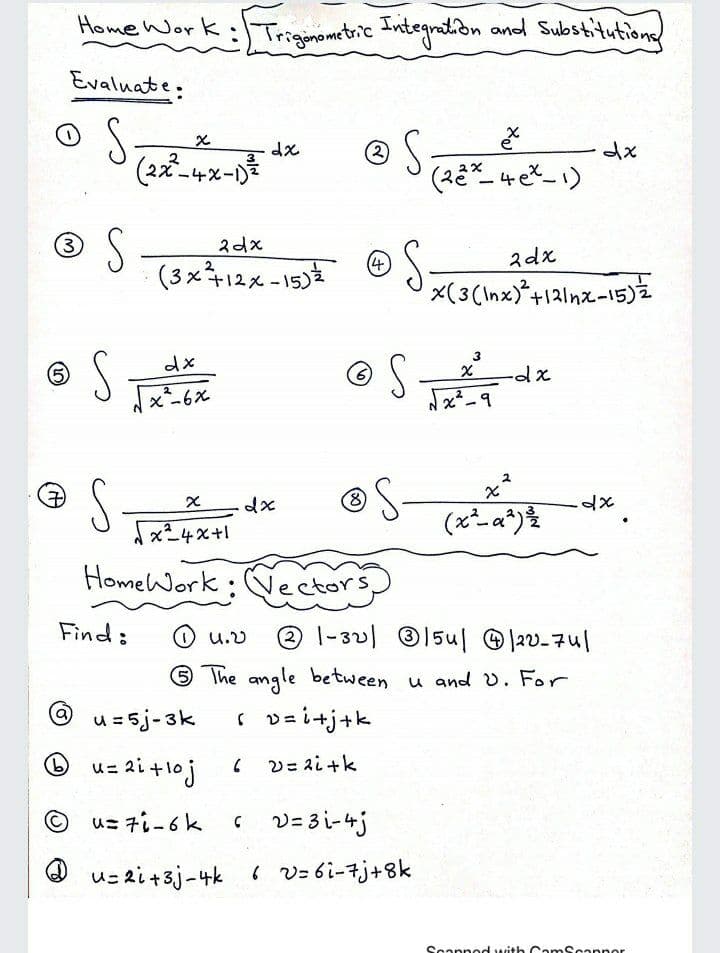 HomeWork: Trigonometric Integration and Substitutions
Evaluate:
① ∫ x / (2x²-4x-1)^(3/2) dx ② ∫ e^x / (2e^(2x)-4e^x-1) dx
③ ∫ 2dx / (3x²+12x-15)^(1/2) ④ ∫ 2dx / x(3(lnx)²+12lnx-15)^(1/2)
⑤ ∫ dx / √(x²-6x) ⑥ ∫ x³ / √(x²-9) dx
⑦ ∫ x / √(x²-4x+1) dx ⑧ ∫ x² / (x²-a²)^(3/2) dx.
HomeWork: Vectors
Find: ① u.v ② |-3v| ③ |5u| ④ |2v-7u|
⑤ The angle between u and v. For
ⓐ u=5j-3k , v=i+j+k
ⓑ u=2i+10j , v=2i+k
ⓒ u=7i-6k , v=3i-4j
ⓓ u=2i+3j-4k , v=6i-7j+8k
Scanned with CamScanner